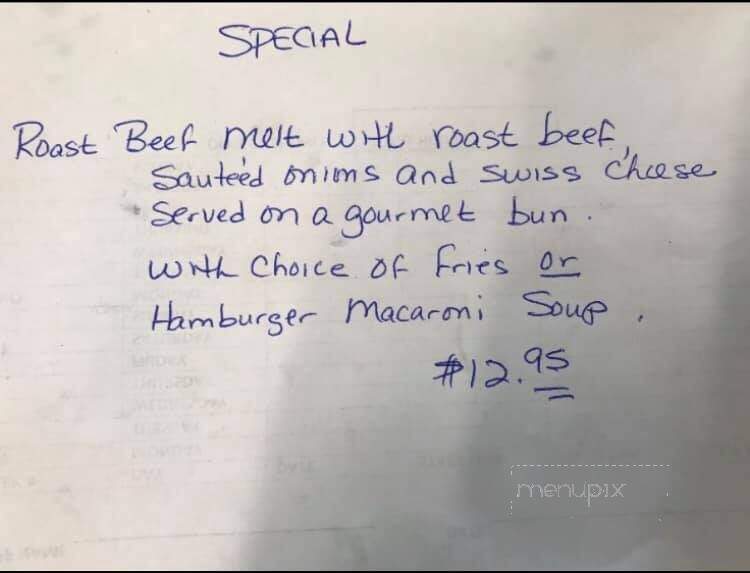 SPECIAL
Roast Beef melt with roast beef,
Sauteéd onions and swiss cheese
Served on a gourmet bun.
with Choice of fries or
Hamburger Macaroni Soup.
$12.95
menupix